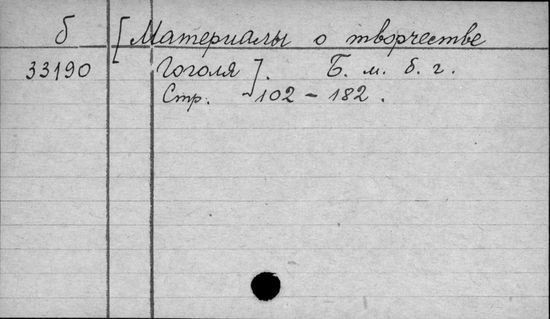 б [Материалы о творчестве
33190 Гоголя]. Б. м. б. г.
Стр. 102 – 182.